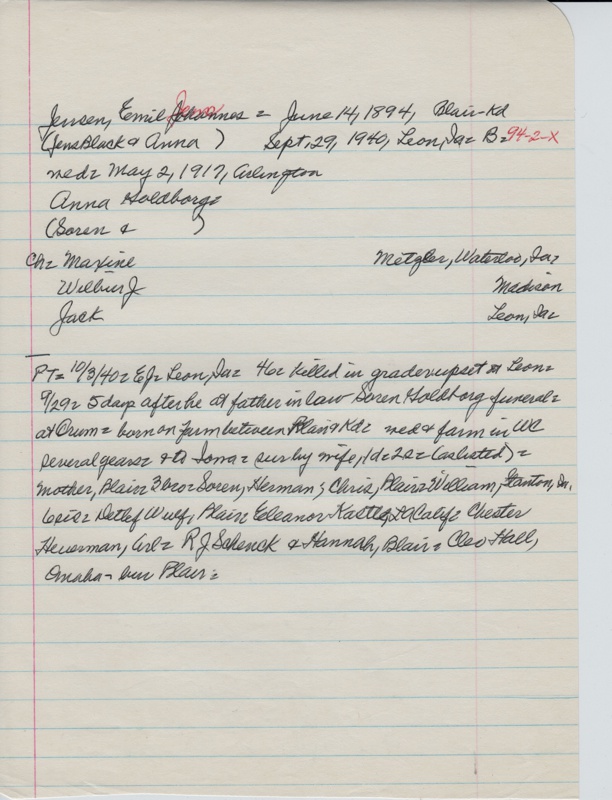 Jensen, Emil Johannes = June 14, 1894, Blair-Kd
(Jens Black & Anna ) Sept. 29, 1940, Leon, Ia= B= 94-2-X
med= May 2, 1917, Arlington
Anna Holdborg=
(Soren & )
Ch= Maxine Metzler, Waterloo, Ia=
Wilbur J Madison
Jack Leon, Ia=
PT= 10/3/40= EJ= Leon, Ia= 46= killed in grader upset Leon=
9/29= 5 days after he at father in law Soren Holdborg funeral=
at Orum= born on farm between Blair & Kd= med & farm in WC
several years= & to Iowa= sur by wife, 1d= 2s= (as listed)=
mother, Blair= 3 bro= Soren, Herman, Chris, Blair= William, Stanton, Ia.
6 sis= Detlef Wulf, Blair= Eleanor Calif= Chester
Heuerman, Arl= R J Schenck & Hannah, Blair= Cleo Hall,
Omaha- bur Blair=